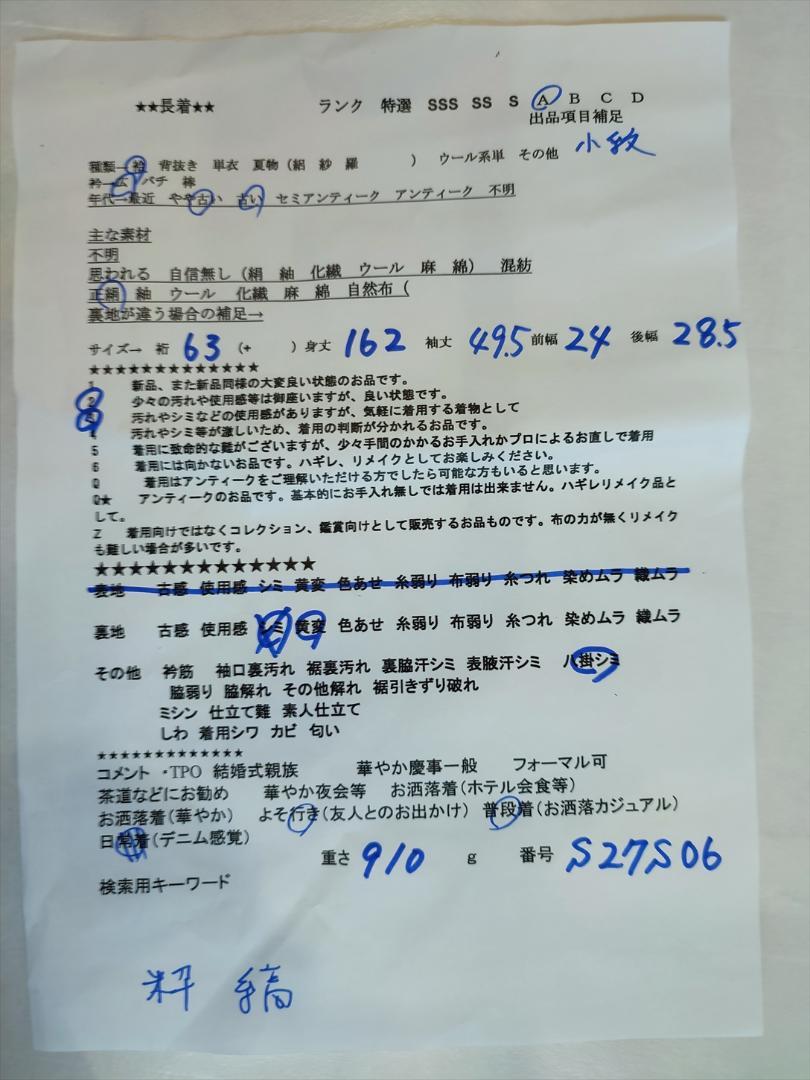 ★★長着★★ ランク 特選 SSS SS S A B C D
出品項目補足
種類→袷 背抜き 単衣 夏物（絽 紗 羅 ） ウール系単 その他 小紋
衿→広 バチ 棒
年代→最近 やや古い 古い セミアンティーク アンティーク 不明
主な素材
不明
思われる 自信無し（絹 紬 化繊 ウール 麻 綿） 混紡
正絹 紬 ウール 化繊 麻 綿 自然布（
裏地が違う場合の補足→
サイズ→ 裄 63 （+ ）身丈 162 袖丈 49.5 前幅 24 後幅 28.5
★★★★★★★★★★★★★
1 新品、また新品同様の大変良い状態のお品です。
2 少々の汚れや使用感等は御座いますが、良い状態です。
3 汚れやシミなどの使用感がありますが、気軽に着用する着物として
4 汚れやシミ等が激しいため、着用の判断が分かれるお品です。
5 着用に致命的な難がございますが、少々手間のかかるお手入れかプロによるお直しで着用
6 着用には向かないお品です。ハギレ、リメイクとしてお楽しみください。
Q 着用はアンティークをご理解いただける方でしたら可能な方もいると思います。
Q★ アンティークのお品です。基本的にお手入れ無しでは着用は出来ません。ハギレリメイク品と
して。
Z 着用向けではなくコレクション、鑑賞向けとして販売するお品ものです。布の力が無くリメイク
も難しい場合が多いです。
★★★★★★★★★★★★★
表地 古感 使用感 シミ 黄変 色あせ 糸弱り 布弱り 糸つれ 染めムラ 織ムラ
裏地 古感 使用感 シミ 黄変 色あせ 糸弱り 布弱り 糸つれ 染めムラ 織ムラ
その他 衿筋 袖口裏汚れ 裾裏汚れ 裏脇汗シミ 表腋汗シミ 八掛シミ
脇弱り 脇解れ その他解れ 裾引きずり破れ
ミシン 仕立て難 素人仕立て
しわ 着用シワ カビ 匂い
★★★★★★★★★★★★★
コメント ・TPO 結婚式親族 華やか慶事一般 フォーマル可
茶道などにお勧め 華やか夜会等 お洒落着（ホテル会食等）
お洒落着（華やか） よそ行き（友人とのお出かけ） 普段着（お洒落カジュアル）
日常着（デニム感覚）
重さ 910 g 番号 S27S06
検索用キーワード
粋 縞